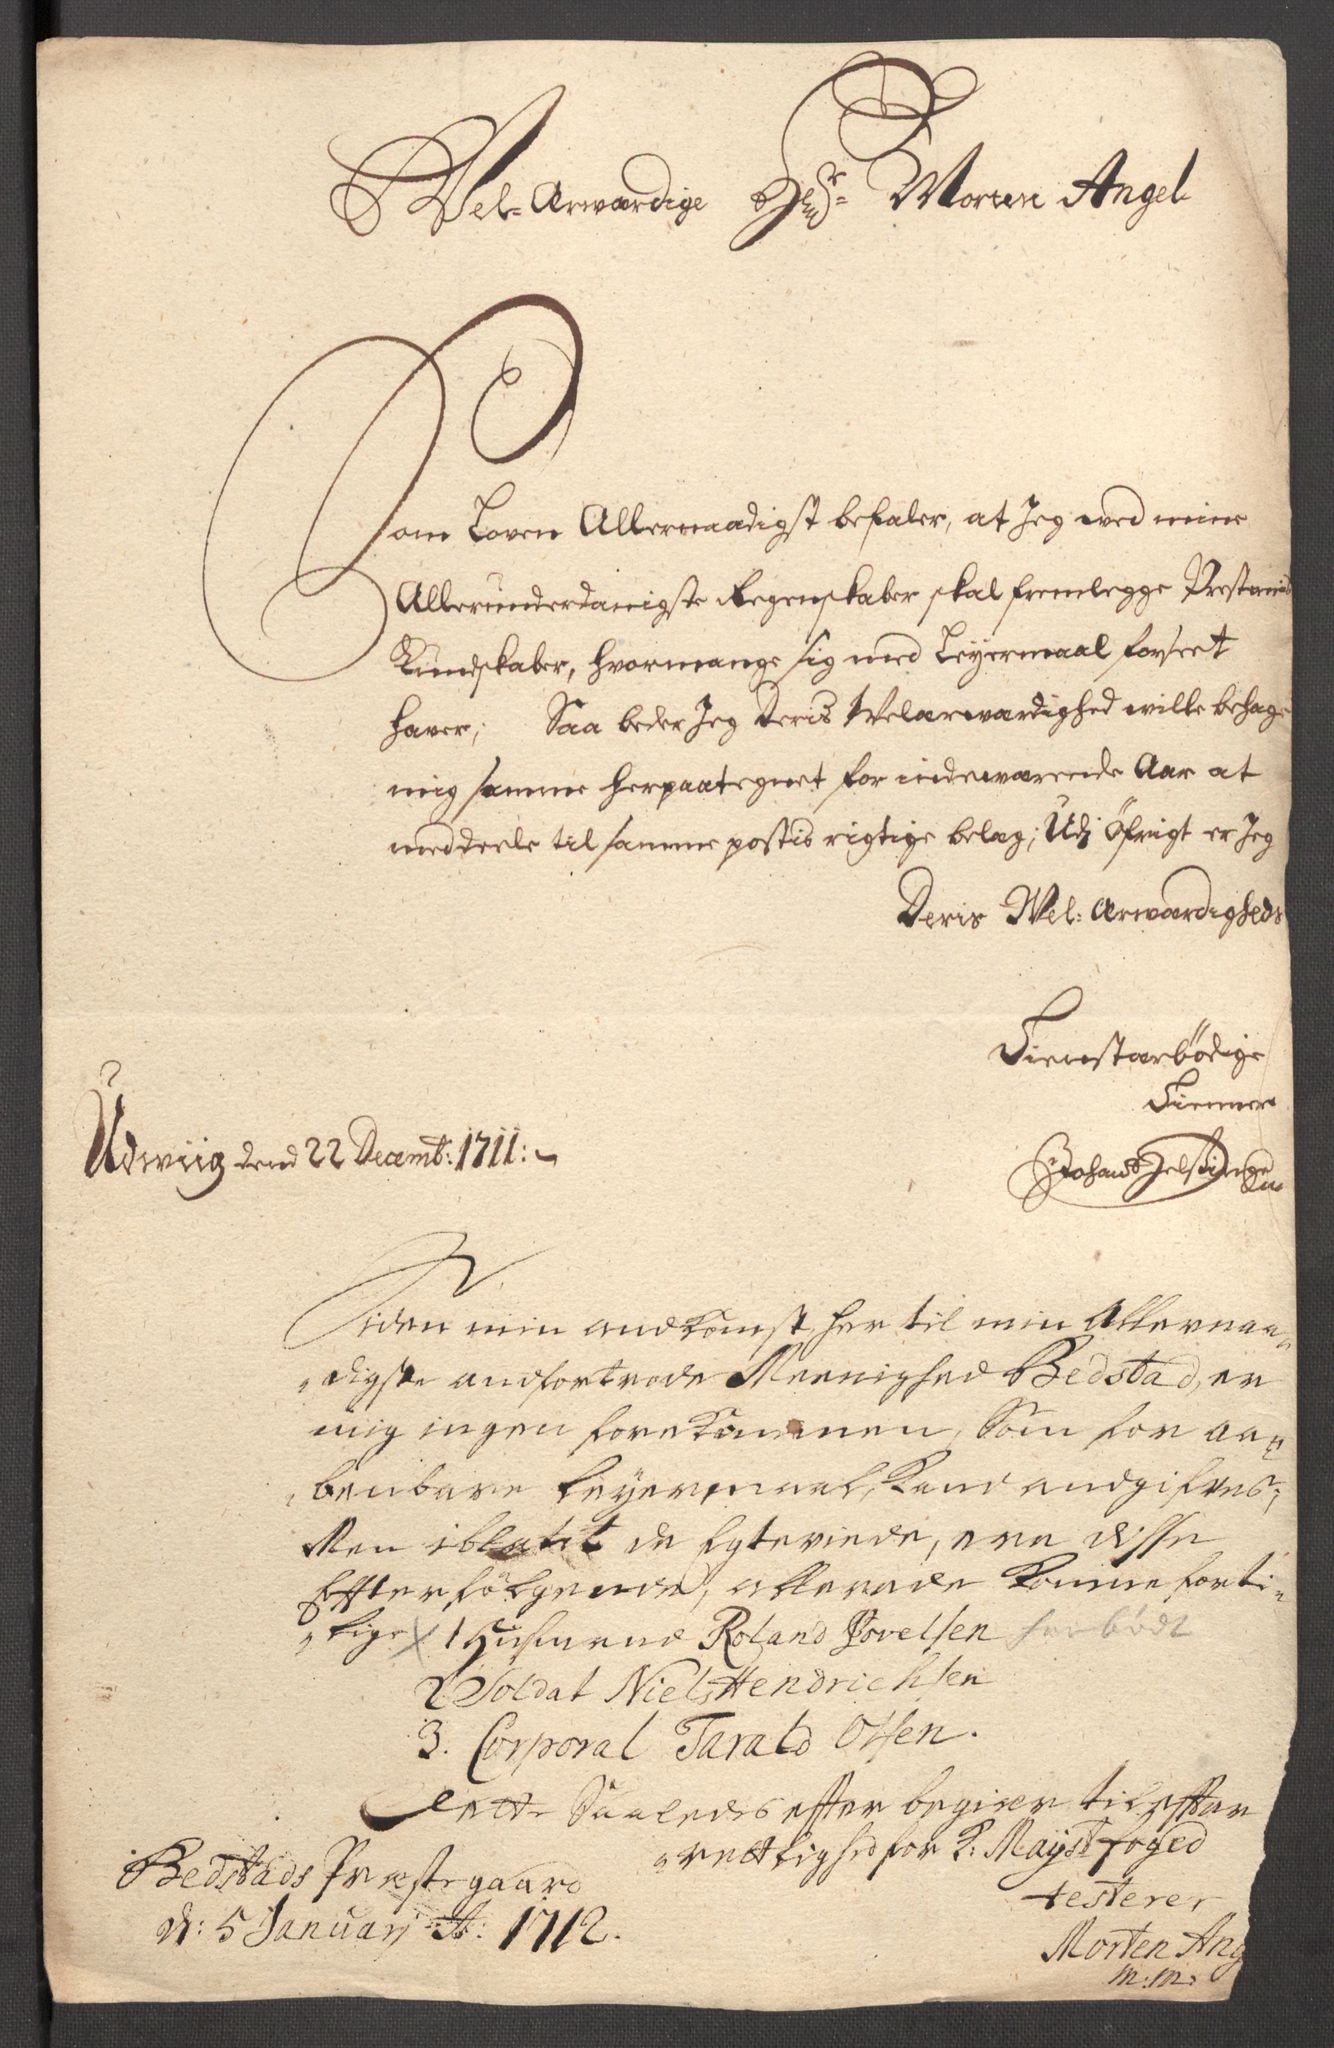 Wel- Ærwærdige Hr= Morten Angel
Som Loven Allernaadigst befaler, at Jeg wed mine
Allerunderdanigste Regenskaber skal fremlegge Presternis
Kundskaber, hvormange sig med Leyermaal forseet
hafver; Saa beder Jeg Deris Welærwærdighed wille behage
mig samme herpaategnet for indewærende Aar at
meddeele til samme postis rigtige belag; Udj Öfrigt er Jeg
Deris Wel: Ærwærdigheds
Tienstærbödige
Tienner
Udwiig dend 22 Decembr: 1711:
Siden min andkomst her til min Allernaa-
digste andfortrode Meenighed Bedstad, er
mig ingen forekommen, Som for aa-
benbare Leyermaal, kand andgifves;
Men iblant de Egteviede, ere disse
Efterfölgende, allerede komne forti-
lige X 1 Husmand Roland Povelsen har bödt
2 Soldat Niels Hendrichsen
3. Corporal Tarald Olsen.
Dette Saaledes efter begier til effter-
retlighed for K: Mayst foged
testerer
Bedstads Præstegaard
d: 5 Januarj Ao: 1712.
Morten Ang
m: m: